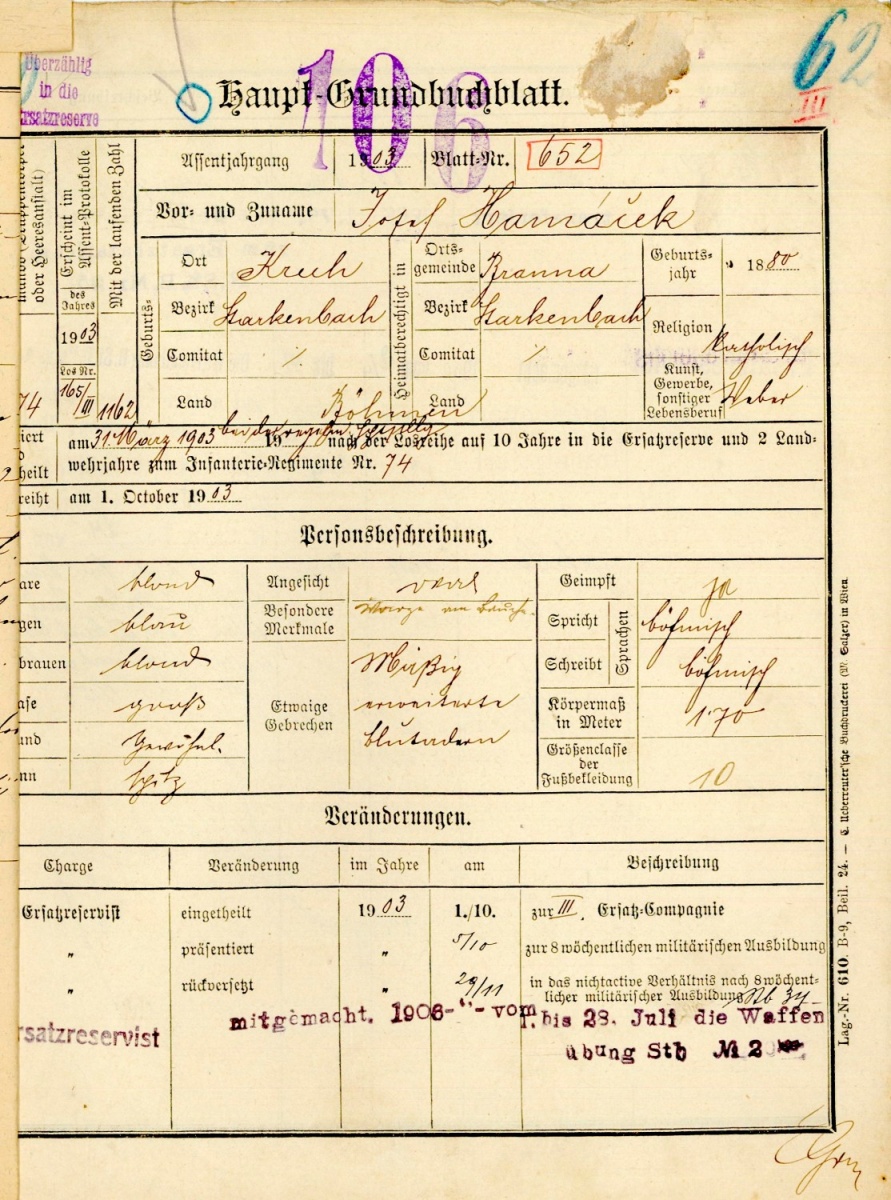 Überzählig
in die
rsatzreserve
106
62
III
Haupt-Grundbuchblatt.
oder Heeresanstalt)
Erscheint im
Assent-Protokolle
des
Jahres
1903
Los Nr.
165/III
Mit der laufenden Zahl
1162
74
Assentjahrgang 1903 Blatt-Nr. 652
Vor- und Zuname Josef Hamáček
Geburts-
Ort
Bezirk Starkenbach
Comitat ./.
Land Böhmen
Heimatberechtigt in
Ortsgemeinde Branna
Bezirk Starkenbach
Comitat ./.
Land
Geburts-
jahr 1880
Religion katholisch
Kunst,
Gewerbe,
sonstiger
Lebensberuf Weber
iert
heilt
am 31. März 1903 bei der regelm. Stellg 19 nach der Losreihe auf 10 Jahre in die Ersatzreserve und 2 Land-
wehrjahre zum Infanterie-Regimente Nr. 74
reiht am 1. October 1903
Personsbeschreibung.
are blond
gen blau
brauen blond
ase groß
und gewöhnl.
nn spitz
Angesicht oval
Besondere
Merkmale Warze am Bauche.
Etwaige
Gebrechen
Mäßig
erweiterte
blutadern
Geimpft ja
Sprachen
Spricht böhmisch
Schreibt böhmisch
Körpermaß
in Meter 1·70
Größenclasse
der
Fußbekleidung 10
Veränderungen.
Charge Veränderung im Jahre am Beschreibung
Ersatzreservist eingetheilt 1903 1./10. zur III. Ersatz-Compagnie
" präsentiert " 5/10 zur 8 wöchentlichen militärischen Ausbildung
" rückversetzt " 29/11 in das nichtactive Verhältnis nach 8 wöchent-
licher militärischer Ausbildung
rsatzreservist mitgemacht. 1906-"-vom 1. bis 28. Juli die Waffen
übung Stb № 2
Lag.-Nr. 610. B-9, Beil. 24. — C. Ueberreuter'sche Buchdruckerei (M. Salzer) in Wien.